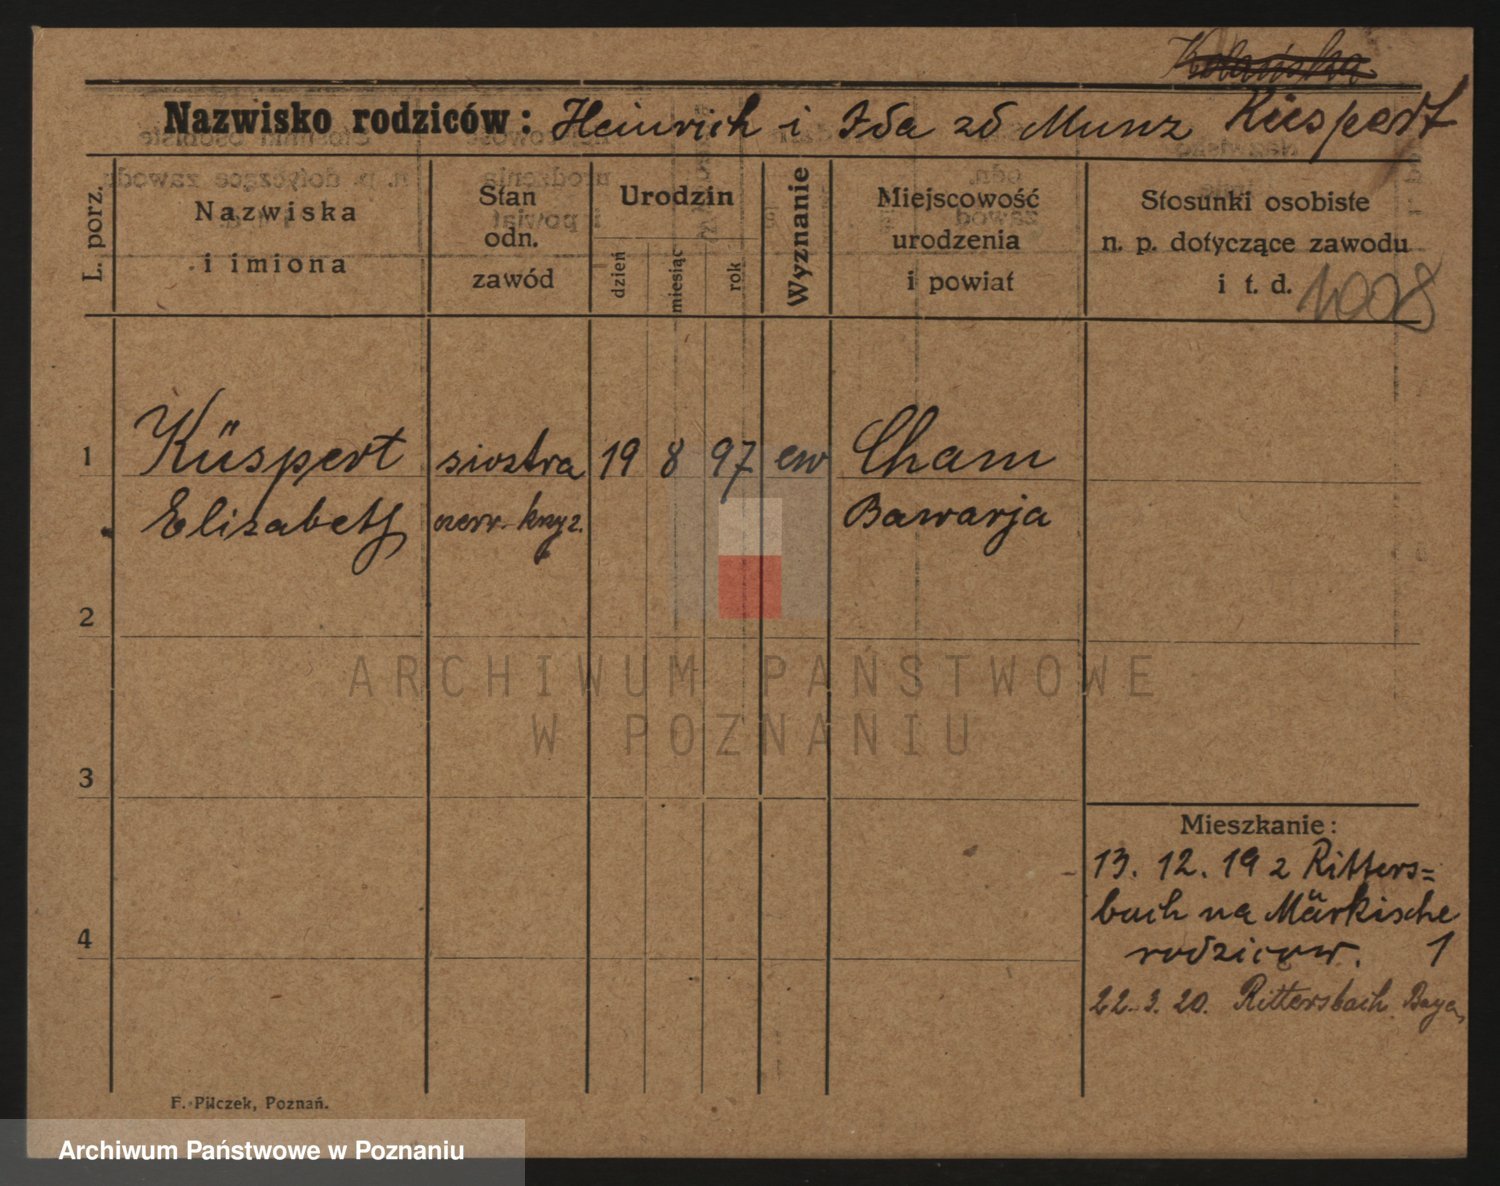 Nazwisko rodziców: Heinrich i Ida zd Munz Küspert
L. porz.
Nazwiska
i imiona
Stan
odn.
zawód
Urodzin
dzień
miesiąc
rok
Wyznanie
Miejscowość
urodzenia
i powiat
Stosunki osobiste
n. p. dotyczące zawodu
i t. d.
1 Küspert siostra 19 8 97 ew Cham
Elisabeth czerw. krzyz. Bawarja
2
ARCHIWUM PAŃSTWOWE
W POZNANIU
3
Mieszkanie:
13. 12. 19 z Ritters=
bach na Märkische
4 rodzicow. 1
22. 3. 20. Rittersbach
F. Pilczek, Poznań.
Archiwum Państwowe w Poznaniu